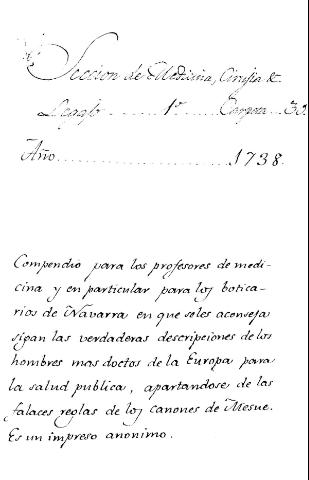 Seccion de Medicina, Cirugia &
Legajo ........ 1º ..... Carpeta .. 30.
Año ........................ 1738.
Compendio para los profesores de medi-
cina y en particular para los botica-
rios de Navarra en que seles aconseja
sigan las verdaderas descripciones de los
hombres mas doctos de la Europa para
la salud publica, apartandose de las
falaces reglas de los canones de Mesue.
Es un impreso anonimo.